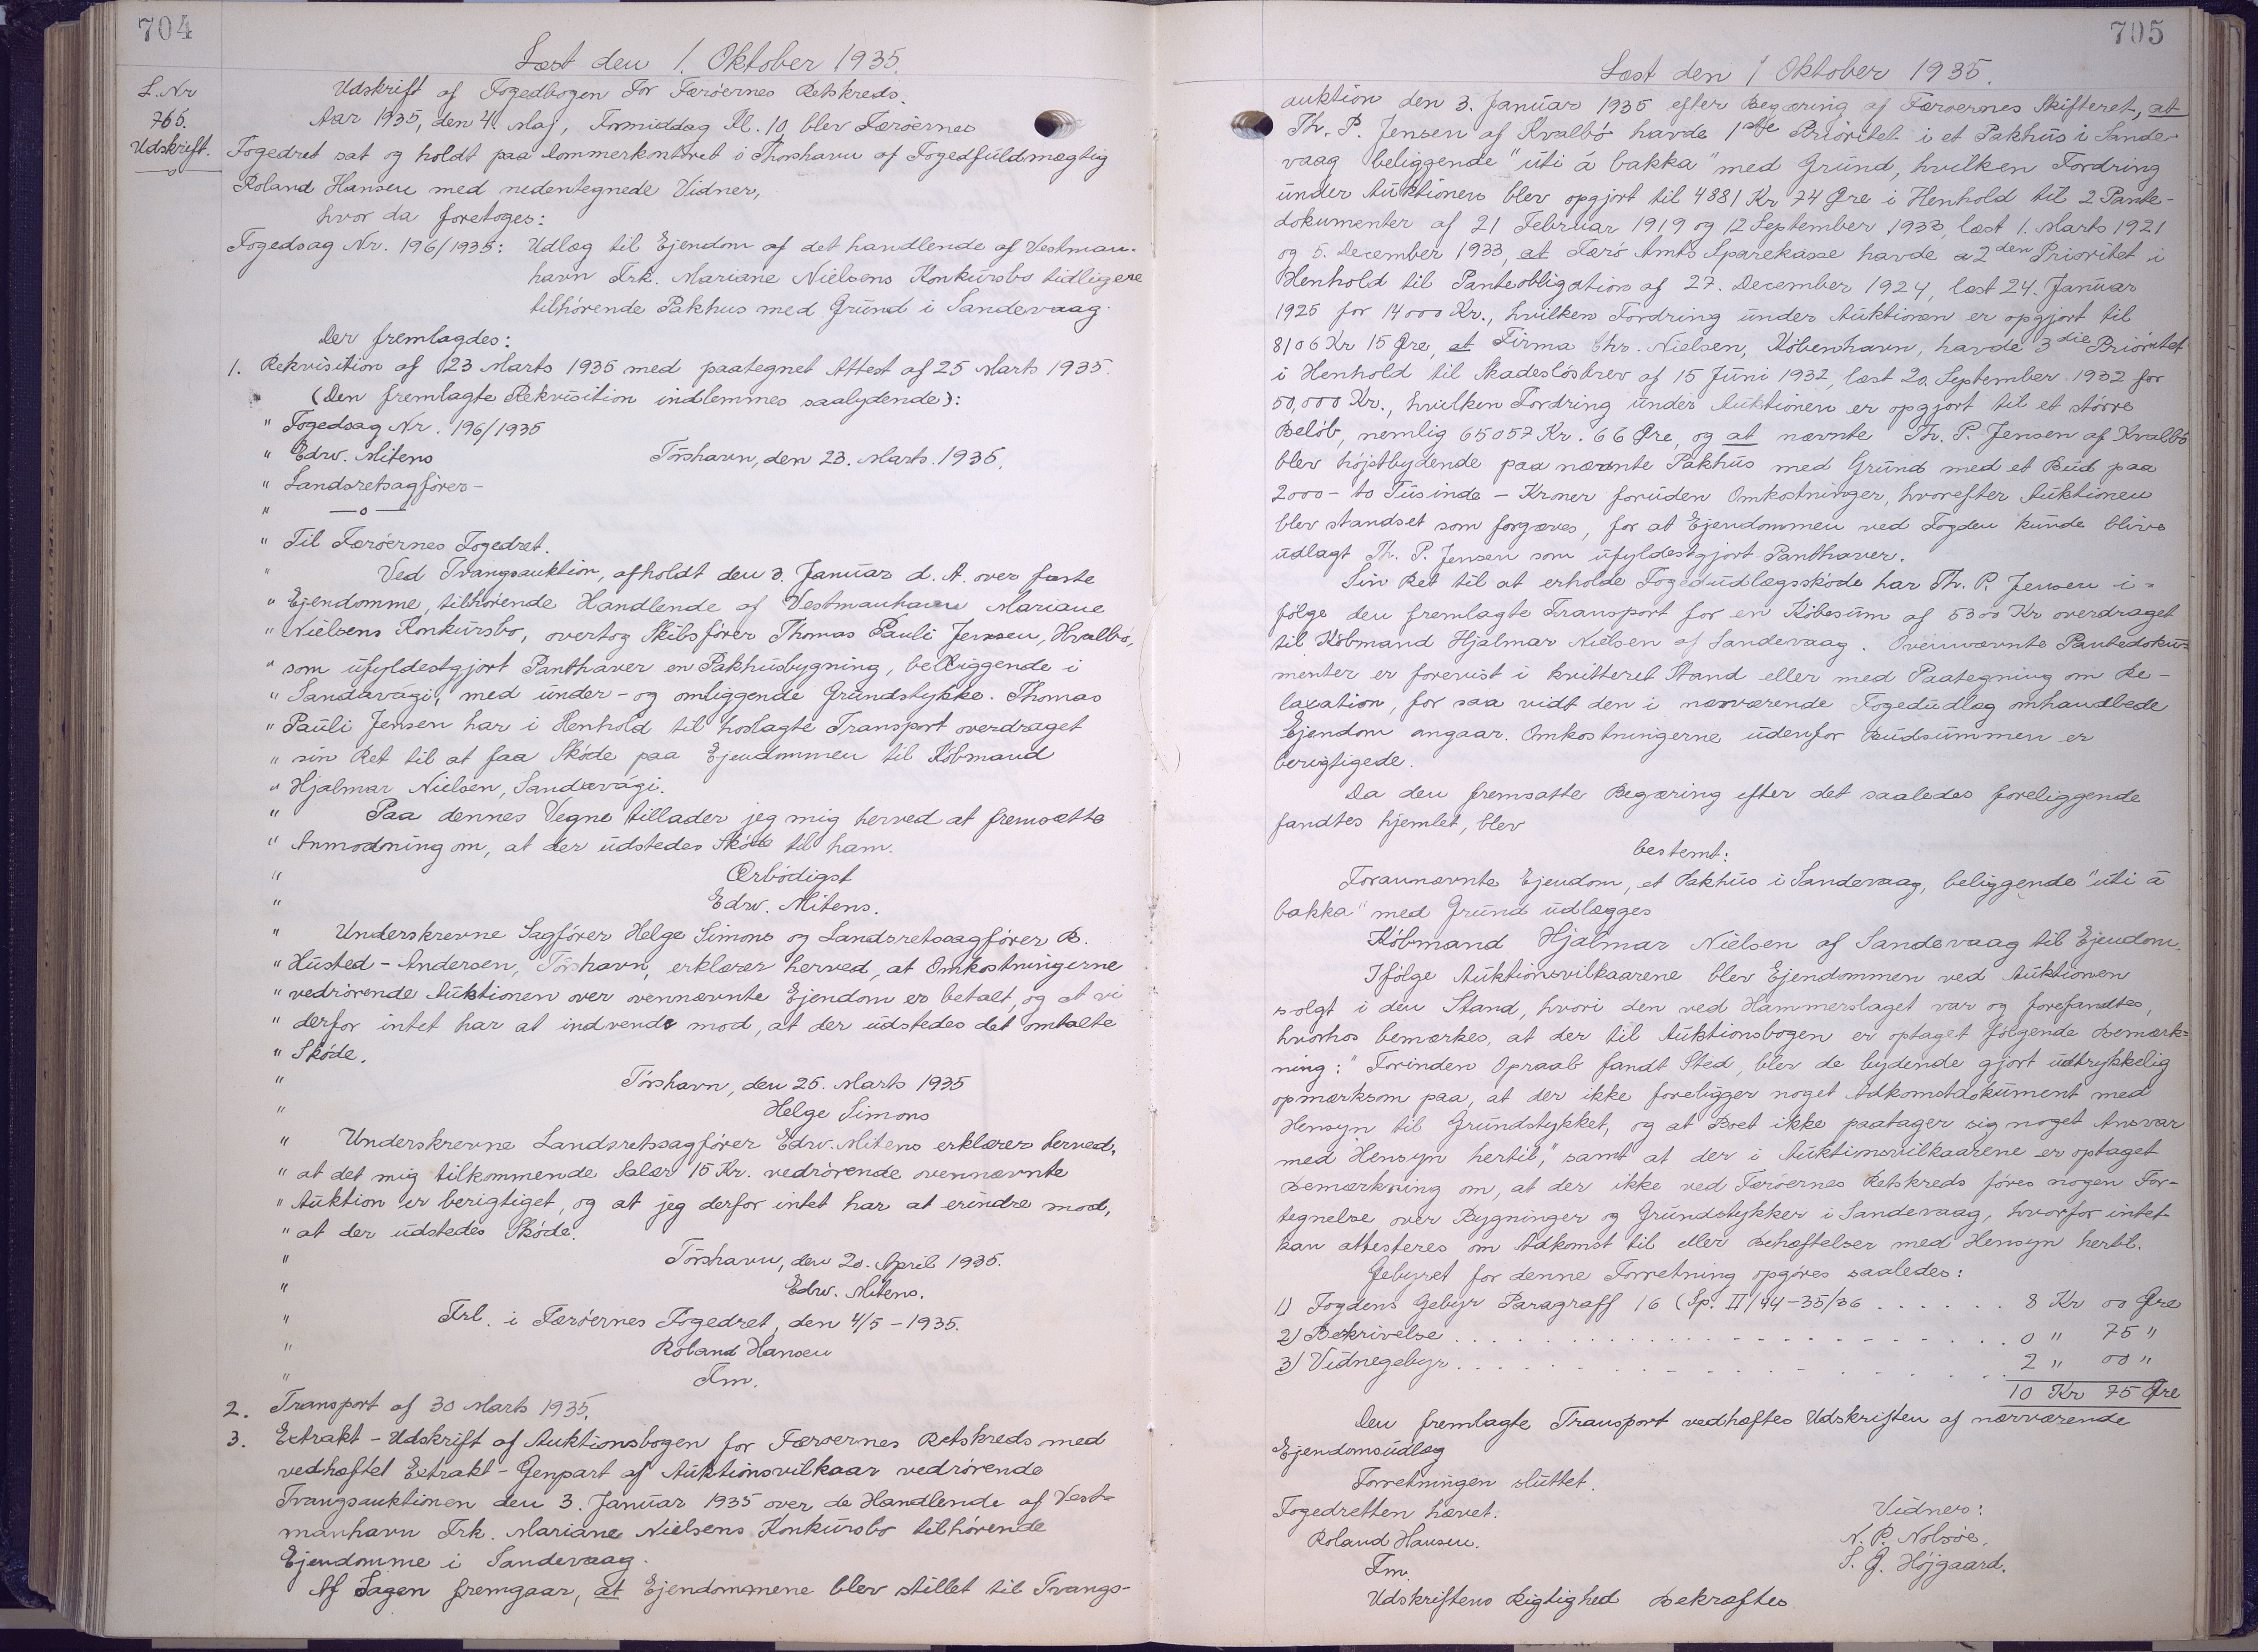 704
Læst den 1. Oktober 1935.
L. Nr
765.
Udskrift.
Udskrift af Fogedbogen for Færöernes Retskreds.
Aar 1935, den 4. Maj, Formiddag Kl. 10, blev Færöernes
Fogedret sat og holdt paa Dommerkontoret i Thorshavn af Fogedfuldmægtig
Roland Hansen med nedentegnede Vidner,
hvor da foretoges:
Fogedsag Nr. 196/1935: Udlæg til Ejendom af det handlende af Vestman-
havn Frk. Mariane Nielsens Konkursbo tidligere
tilhörende Pakhus med Grund i Sandevaag.
Der fremlagdes:
1. Rekvisition af 23 Marts 1935 med paategnet Attest af 25 Marts 1935.
(Den fremlagte Rekvisition indlemmes saalydende):
" Fogedsag Nr. 196/1935
" Edw. Mitens Tórshavn, den 23. Marts. 1935.
" Landsretsagförer-
" —o—
" Til Færöernes Fogedret.
" Ved Tvangsauktion, afholdt den 3. Januar d. A. over faste
" Ejendomme, tilhörende Handlende af Vestmanhavn Mariane
" Nielsens Konkursbo, overtog Skibsförer Thomas Pauli Jensen, Hvalbö,
" som ufyldestgjort Panthaver en Pakhusbygning, beliggende i
" Sandavági, med under- og omliggende Grundstykke. Thomas
" Pauli Jensen har i Henhold til hoslagte Transport overdraget
" sin Ret til at faa Sköde paa Ejendommen til Köbmand
" Hjalmar Nielsen, Sandavági.
" Paa dennes Vegne tillader jeg mig herved at fremsætte
" Anmodning om, at der udstedes Sköde til ham.
" Ærbödigst
" Edw. Mitens.
" Underskrevne Sagförer Helge Simons og Landsretssagförer B.
" Husted-Andersen, Tórshavn, erklærer herved, at Omkostningerne
" vedrörende Auktionen over ovennævnte Ejendom er betalt, og at vi
" derfor intet har at indvende mod, at der udstedes det omtalte
" Sköde.
" Tórshavn, den 25. Marts 1935
" Helge Simons
" Underskrevne Landsretssagförer Edw. Mitens erklærer herved,
" at det mig tilkommende Salær 15 Kr. vedrörende ovennævnte
" Auktion er berigtiget, og at jeg derfor intet har at erindre mod,
" at der udstedes Sköde.
" Tórshavn, den 20. April 1935.
" Edw. Mitens.
" Frl. i Færöernes Fogedret, den 4/5-1935.
" Roland Hansen
" Fm.
2. Transport af 30 Marts 1935.
3. Extrakt-Udskrift af Auktionsbogen for Færöernes Retskreds med
vedhæftet Extrakt-Genpart af Auktionsvilkaar vedrörende
Tvangsauktionen den 3. Januar 1935 over de Handlende af Vest-
manhavn Frk. Mariane Nielsens Konkursbo tilhörende
Ejendomme i Sandevaag.
Af Sagen fremgaar, at Ejendommene blev stillet til Tvangs-
705
Læst den 1 Oktober 1935.
auktion den 3. Januar 1935 efter Begæring af Færöernes Skifteret, at
Th. P. Jensen af Kvalbö havde 1ste Prioritet i et Pakhus i Sande-
vaag beliggende "úti á bakka" med Grund, hvilken Fordring
under Auktionen blev opgjort til 4881 Kr 74 Øre i Henhold til 2 Pante-
dokumenter af 21 Februar 1919 og 12 September 1933, læst 1. Marts 1921
og 5. December 1933, at Færö Amts Sparekasse havde 2den Prioritet i
Henhold til Panteobligation af 27. December 1924, læst 24. Januar
1925 for 14000 Kr., hvilken Fordring under Auktionen er opgjort til
8106 Kr 15 Øre, at Firma Chr. Nielsen, Köbenhavn, havde 3die Prioritet
i Henhold til Skadeslösbrev af 15 Juni 1932, læst 20. September 1932 for
50,000 Kr., hvilken Fordring under Auktionen er opgjort til et större
Belöb, nemlig 65057 Kr. 66 Øre, og at nævnte Th. P. Jensen af Kvalbö
blev höjstbydende paa nævnte Pakhus med Grund med et Bud paa
2000- to Tusinde - Kroner foruden Omkostninger, hvorefter Auktionen
blev standset som forgæves, for at Ejendommen ved Fogden kunde blive
udlagt Th. P. Jensen som ufyldestgjort Panthaver.
Sin Ret til at erholde Fogedudlægsskóde har Th. P. Jensen i-
fölge den fremlagte Transport for en Köbesum af 5300 Kr overdraget
til Köbmand Hjalmar Nielsen af Sandevaag. Ovennævnte Pantedoku=
menter er forevist i kvitteret Stand eller med Paategning om Re-
laxation, for saa vidt den i nærværende Fogedudlæg omhandlede
Ejendom angaar. Omkostningerne udenfor Budsummen er
berigtigede.
Da den fremsatte Begæring efter det saaledes foreliggende
fandtes hjemlet, blev
bestemt:
Forannævnte Ejendom, et Pakhus i Sandevaag, beliggende "úti á
bakka" med Grund udlægges
Köbmand Hjalmar Nielsen af Sandevaag til Ejendom.
Ifölge Auktionsvilkaarene blev Ejendommen ved Auktionen
solgt i den Stand, hvori den ved Hammerslaget var og forefandtes,
hvorhos bemærkes, at der til Auktionsbogen er optaget fölgende Bemærk=
ning: "Forinden Opraab fandt Sted, blev de bydende gjort udtrykkelig
opmærksom paa, at der ikke foreligger noget Adkomstdokument med
Hensyn til Grundstykket, og at Boet ikke paatager sig noget Ansvar
med Hensyn hertil," samt at der i Auktionsvilkaarene er optaget
Bemærkning om, at der ikke ved Færöernes Retskreds föres nogen For-
tegnelse over Bygninger og Grundstykker i Sandevaag, hvorfor intet
kan attesteres om Adkomst til eller Behæftelser med Hensyn hertil.
Gebyret for denne Forretning opgöres saaledes:
1) Fogdens Gebyr Paragraff 16 (Sp. II/44-35/36 . . . . . . 8 Kr 00 Øre
2) Beskrivelse . . . . . . . . . . . . . . . . 0 " 75 "
3) Vidnegebyr . . . . . . . . . . . . . . . . 2 " 00 "
10 Kr 75 Øre
Den fremlagte Transport vedhæftes Udskriften af nærværende
Ejendomsudlæg
Forretningen sluttet.
Fogedretten hævet. Vidner:
Roland Hansen. N. P. Nolsöe.
Fm. S. G. Höjgaard.
Udskriftens Rigtighed Bekræftes